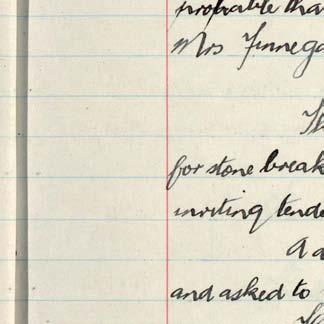 probable tha
Mrs Finnega
for stone break
inviting tende
A a
and asked to